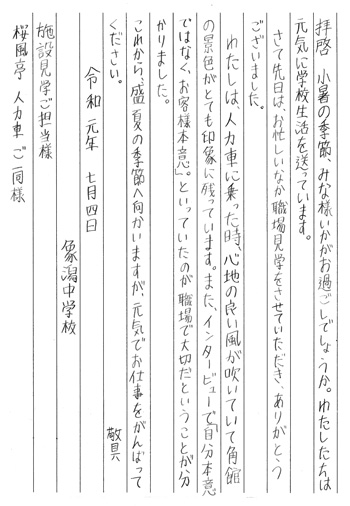 拝啓　小暑の季節、みな様いかがお過ごしでしょうか。わたしたちは
元気に学校生活を送っています。
さて先日は、お忙しいなか職場見学をさせていただき、ありがとう
ございました。
わたしは、人力車に乗った時、心地の良い風が吹いていて角館
の景色がとても印象に残っています。また、インタービューで「自分本意
ではなく、お客様本意」。といっていたのが職場で大切だということが分
かりました。
これから、盛夏の季節へ向かいますが、元気でお仕事をがんばって
ください。
敬具
令和元年　七月四日
象潟中学校
施設見学ご担当様
桜風亭　人力車　ご一同様